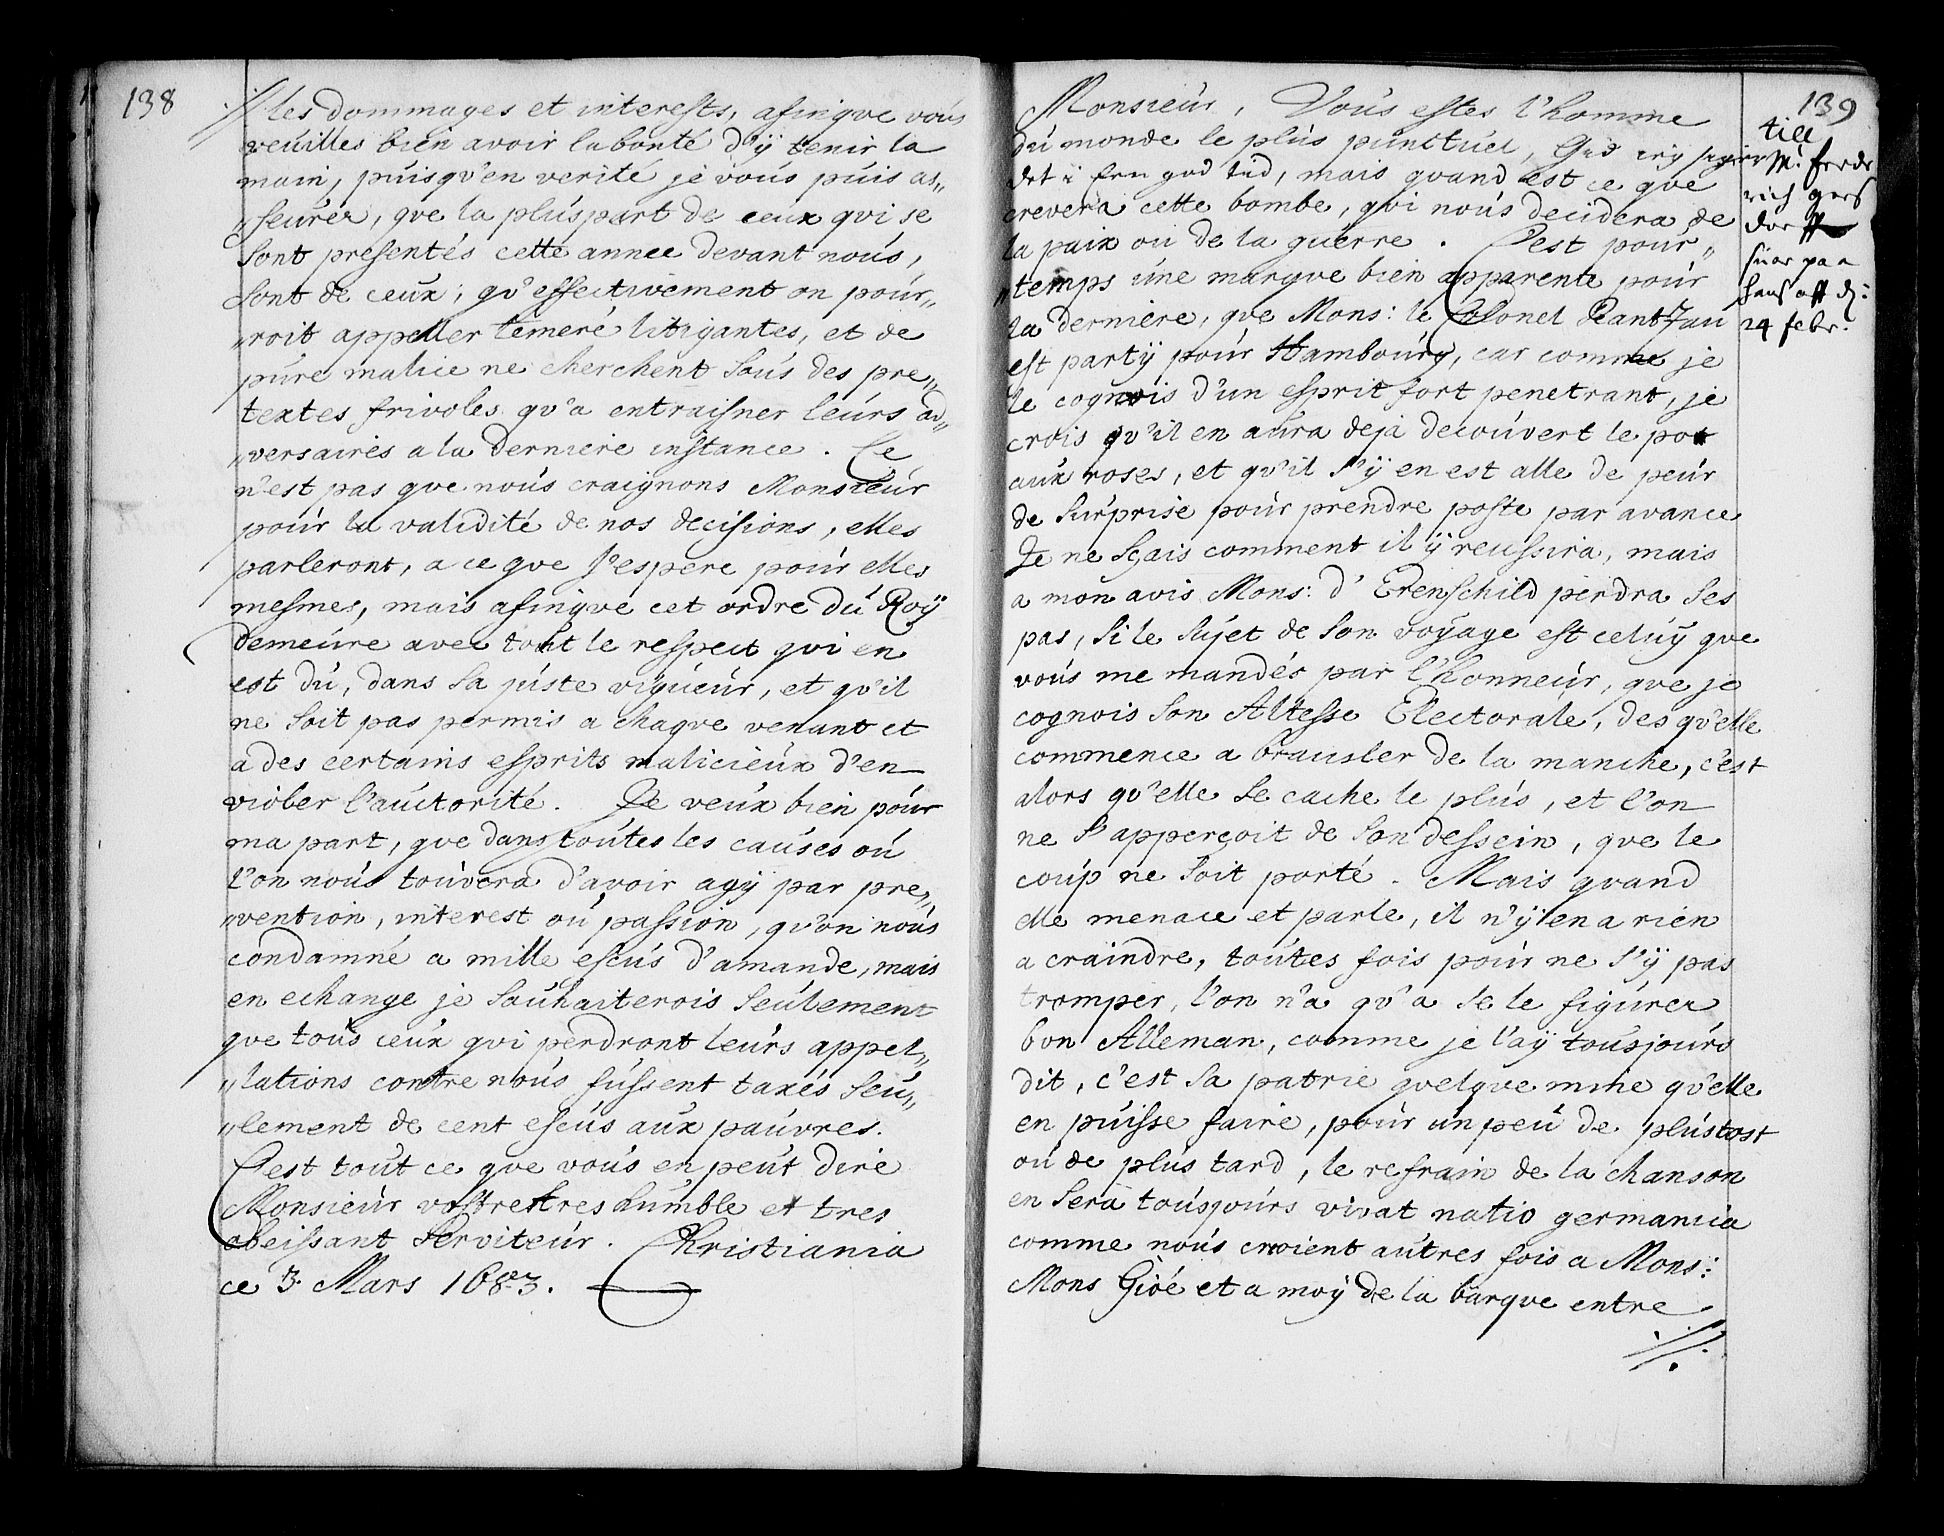 138
les dommages et interests, afinqve vous
veuilles bien avoir la bonté d'ÿ tenir la
main, puisqv'en verité je vous puis as„
„seurer, qve la pluspart de ceux qvi se
sont presentés cette annee devant nous,
sont de ceux, qv'effectivement on pour„
„roit appeller temeré litigantes, et de
pure malice ne cherchent sous des pre„
textes frivoles qv'a entraisner leurs ad„
„versaires a la derniere instance. Ce
n'est pas qve nous craignons Monsieur
pour la validité de nos decisions, elles
parleront, a ce qve j'espere pour elles
mesmes, mais afinqve cet ordre du Roÿ
demeure avec tout le respect qvi en
est du, dans sa juste vigueur, et qv'il
ne soit pas permis a chaqve venant et
a des certains esprits malicieux d'en
violer l'auctorité. Je veux bien pour
ma part, qve dans toutes les causes ou
l'on nous touvera d'avoir agÿ par pre„
„vention, interest ou passion, qv'on nous
condamné a mille escus d'amande, mais
en echange je souhaiterois seulement
qve tous ceux qvi perdront leurs appel„
„lations contre nous fussent taxés seu„
„lement de cent escus aux pauvres.
C'est tout ce qve vous en peut dire
Monsieur vostre tres humble et tres
obeissant serviteur. Christiania
ce 3 Mars 1683.
139
Monsieur, Vous estes l'homme
du monde le plus punctuel, Gud
det i sin god tid, mais qvand est ce qve
crevera cette bombe, qvi nous decidera de
la paix ou de la guerre. C'est pour„
„temps une marqve bien apparente pour
la derniere, qve Mons: le Colonel Rantzau
est partÿ pour Hambourg, car comme je
le cognois d'un esprit fort penetrant, je
crois qv'il en aura deja decouvert le pot
aux roses, et qv'il s'ÿ en est alle de peur
de surprise pour prendre poste par avance
Je ne sçais comment il ÿ reussira, mais
a mon avis Mons: d'Erenschild perdra ses
pas, si le sujet de son voÿage est celuÿ qve
vous me mandés par l'honneur, qve je
cognois son Altesse Electorale, des qv'elle
commence a bransler de la manche, c'est
alors qv'elle se cache le plus, et l'on
ne s'apperçoit de son dessein, qve le
coup ne soit porté. Mais qvand
elle menace et parle, il n'ÿ en a rien
a craindre, toutes fois pour ne s'ÿ pas
tromper, l'on n'a qv'a se le figurer
bon Alleman, comme je l'aÿ tousjours
dit, c'est sa patrie qvelqve mine qv'elle
en puisse faire, pour un peu de plustost
ou de plus tard, le refrain de la chanson
en sera tousjours vivat natio germanica
comme nous crioient autres fois a Mons:
Mons Giöé et a moÿ de la barqve entre
till
Mr. frede
rich gers
dorff
suar paa
hans aff dj:
24 febr.